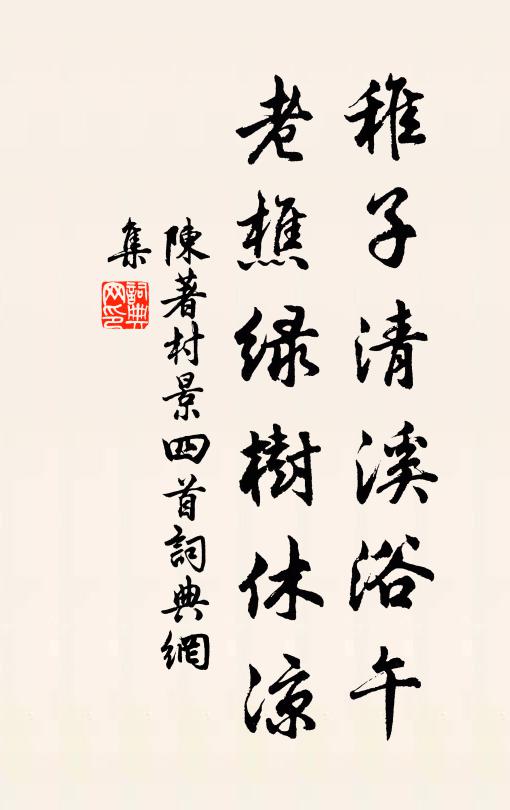 稚子清溪浴午
老樵緑樹休涼
陳著村景四首詞典網
集
詞典網印